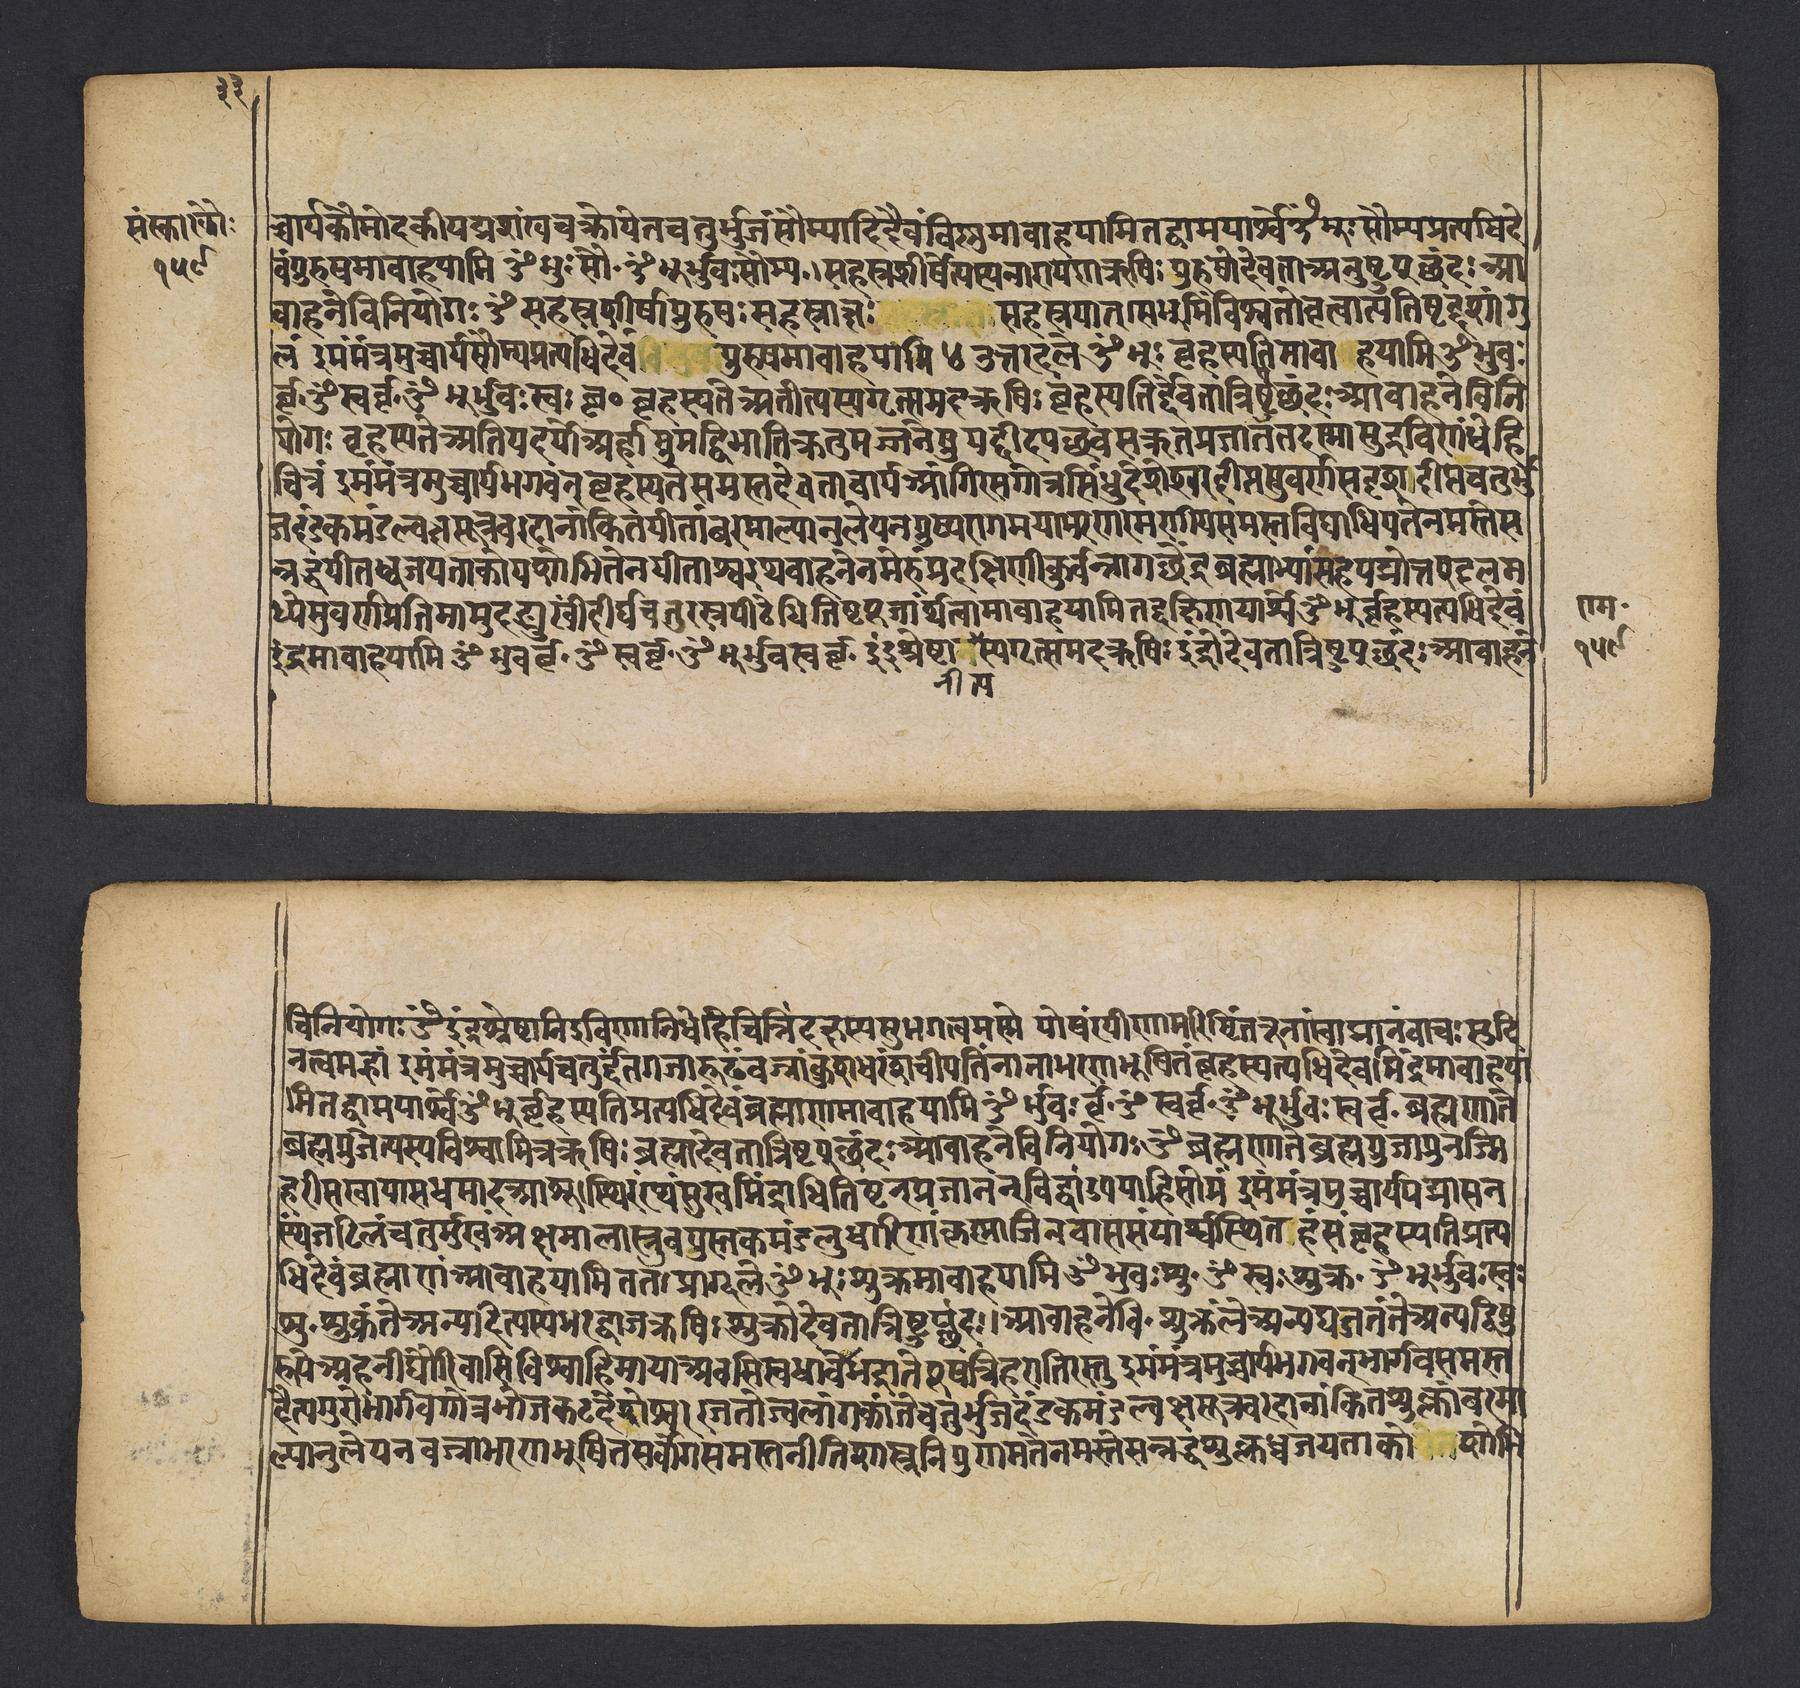 ३३
संस्कारकौ॰
१५९
च्चार्यकौमोदकीपद्मशंखचक्रोपेतचतुर्भुजंसौम्याधिदैवंविष्णुमावाहयामितद्वामपार्श्वेॐभूःसौम्यप्रत्यधिदे
वंपुरुषमावाहयामि ॐभुःसौ॰ॐभूर्भुवःसौम्य॰।सहस्रशीर्षेत्यस्यनारायणऋषिः पुरुषोदेवताअनुष्टुप्छंदः आ
वाहनेविनियोगः ॐ सहस्रशीर्षापुरुषः सहस्राक्षः सहस्रपात् सभूमिंविश्वतोवृत्वात्यतिष्टद्दशांगु
लं इमंमंत्रमुच्चार्यसौम्यप्रत्यधिदेवं पुरुषमावाहयामि ४ उत्तरदले ॐ भूः बृहस्पतिमावा हयामिॐभुवः
बृ॰ॐ स्वर्बृ॰ॐ भूर्भुवःस्वः बृ॰ बृहस्पतेअतीत्यस्यगृत्समदऋषिः बृहस्पतिर्देवतात्रिष्टुप्छंदः आवाहनेविनि
योगः बृहस्पतेअतियदर्योअर्हाद्युमद्विभातिक्रतुमज्जनेषु यद्दीदयच्छवसऋतप्रजाततदस्मासुद्रविणंधेहि
चित्रं इमंमंत्रमुच्चार्यभगवन् बृहस्पतेसमस्तदेवताचार्यआंगिरसगोत्रसिंधुदेशेश्वर सुवर्णसदृशदीप्तेचतुर्भु
जदंडकमंडल्वक्षसूत्रवरदानांकितपीतांबरमाल्यानुलेपनपुष्परागमयाभरणरमणीयसमस्तविद्याधिपतेनमस्तेस
न्नद्धपीतध्वजपताकोपशोभितेनपीताश्वरथवाहनेनमेरुंप्रदक्षिणीकुर्वन्नागच्छेंद्रब्रह्माभ्यांसहपद्मोत्तरदलम
ध्येसुवर्णप्रतिमामुदङ्मुखींदीर्घचतुरस्रपीठेधितिष्टपूजार्थंत्वामावाहयामितद्दक्षिणपार्श्वेॐभूर्बृहस्पत्यधिदेवं
इंद्रमावाहयामि ॐ भुवर्बृ॰ ॐ स्वर्बृ॰ॐ भूर्भुवस्वर्बृ॰ इंद्रश्रेष्टा स्यगृत्समदऋषिः इंद्रोदेवतात्रिष्टुप्छंदः आवाहने
नीत्य
राम॰
१५९
विनियोगःॐइंद्रश्रेष्टानिद्रविणानिधेहिचित्तिंदक्षस्यसुभगत्वमस्मे पोषंरयीणामरिष्टिंतनूनांस्वाद्मानंवाचःसुदि
नत्वमह्नां इमंमंत्रमुच्चार्यचतुर्दंतगजारूढंवज्रांकुशधरंशचीपतिंनानाभरणभूषितंबृहस्पत्यधिदेवमिंद्रमावाहया
मितद्वामपार्श्वेॐ भूर्बृहस्पतिप्रत्यधिदेवंब्रह्माणमावाहयामि ॐ र्भुवः र्बृ॰ॐ स्वर्बृ॰ॐ भूर्भुवः स्वर्बृ॰ ब्रह्मणाते
ब्रह्मयुजेत्यस्यविश्वामित्रऋषिः ब्रह्मादेवतात्रिष्टुप्छंदः आवाहनेविनियोगः ॐ ब्रह्मणातेब्रह्मयुजायुनज्मि
हरीसखायासधमादआशू।स्थिरंरथंसुखमिंद्राधितिष्टन्प्रजानन्विद्वाउपयाहिसोमं इमंमंत्रमुच्चार्यपद्मासन
स्थंजटिलंचतुर्मुखंअक्षमालास्रुवपुस्तककमंडलुधारिणंकृष्णाजिनवाससंपार्श्वस्थित हंसंबृहस्पतिप्रत्य
धिदेवंब्रह्माणंआवाहयामि ततःप्राग्दलेॐ भूः शुक्रमावाहयामि ॐ भुवः शु॰ ॐ स्वः शुक्र॰ ॐ भूर्भुवःस्वः
शु॰ शुक्रंतेअन्यदित्यस्यभरद्वाजऋषिः शुक्रोदेवतात्रिष्टुप्छंदः।।आवाहनेवि॰ शुक्रंतेअन्यद्यजतंतेअन्यद्विषु
रूपेअहनीद्यौरिवासिविश्वाहिमायाअवसिस्वधावोभद्रातेपूषन्निहरातिरस्तु इमंमंत्रमुच्चार्यभगवन्भार्गवसमस्त
दैत्यगुरोभार्गवगोत्रभोजकटदेशेश्वररजतोज्वलांगकांतेचतुर्भुजदंडकमंडल्वक्षसूत्रवरदानांकितशुक्लांबरमा
ल्यानुलेपनवज्राभरणभूषितसर्वांगसमस्तनीतिशास्त्रनिपुणमतेनमस्तेसन्नद्धशुक्लध्वजपताको पशोभि